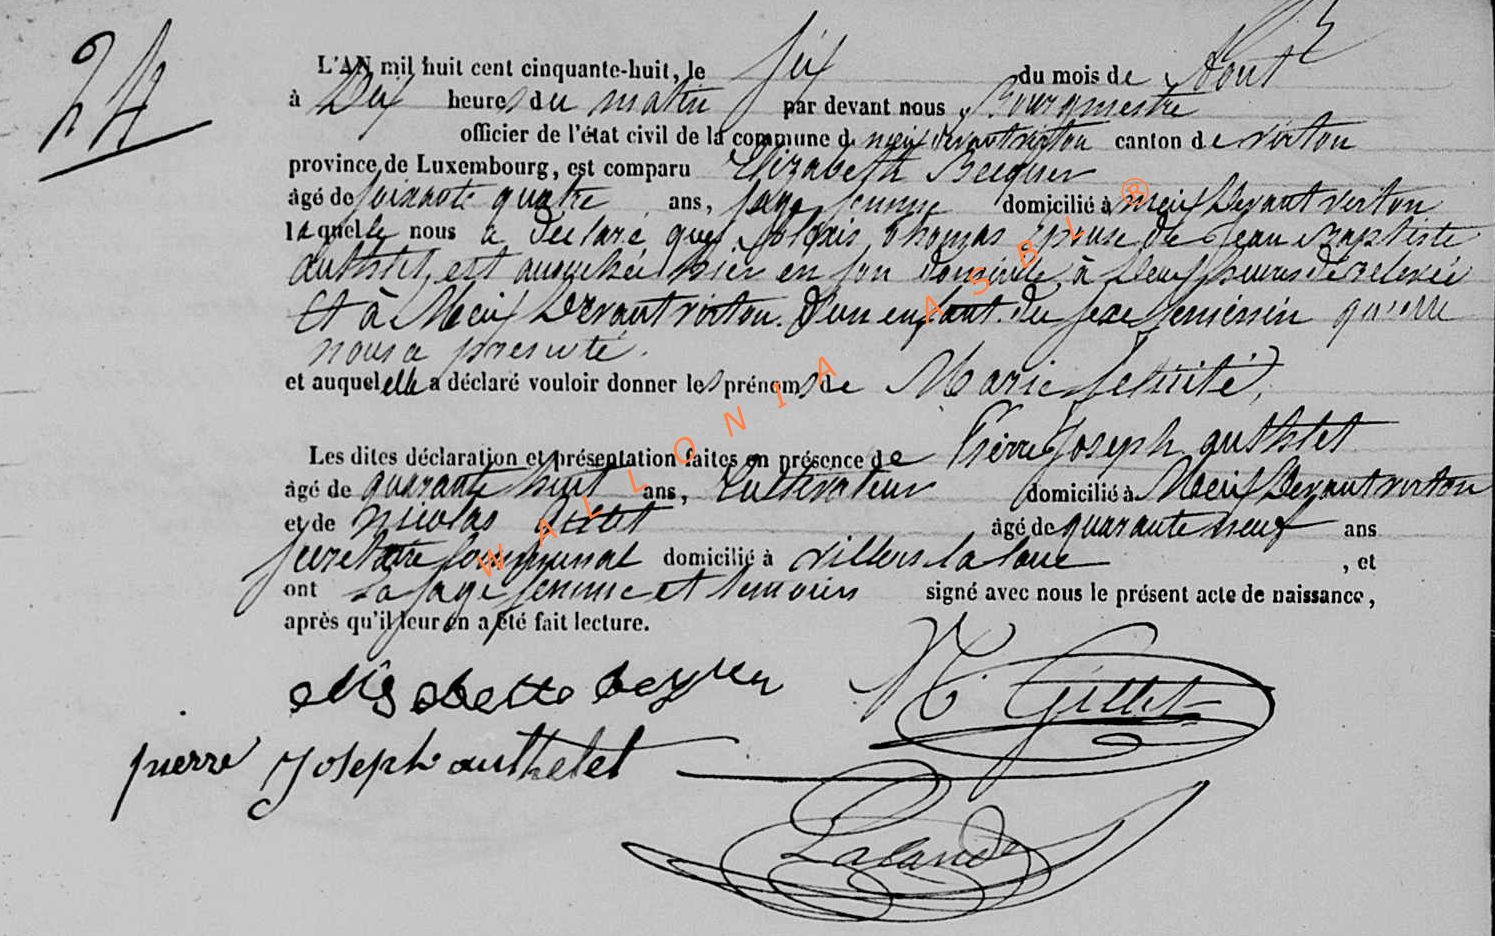 24
L'AN mil huit cent cinquante-huit, le six du mois de Aout
à Dix heures du matin par devant nous, Bourgmestre
officier de l'état civil de la commune de meix devant virton canton de virton
province de Luxembourg, est comparu Elizabeth
âgé de soixante quatre ans, sage femme domicilié à meix Devant virton
laquelle nous a declaré que thomas épouse de Jean Baptiste
authelet, est accouchée hier en son domicile à heures de relevée
Et à Meix Devant virton. D'un enfant du sexe feminin qu'elle
nous a presenté.
et auquel elle a déclaré vouloir donner les prénoms de Marie felicité,
Les dites déclaration et présentation faites en présence de Pierre Joseph authelet
âgé de quarante huit ans, Cultivateur domicilié à Meix Devant virton
et de nicolas âgé de quarante neuf ans
secretaire Communal domicilié à villers la loue, et
ont La sage femme et temoins signé avec nous le présent acte de naissance,
après qu'il leur en a été fait lecture.
N. Gillet
pierre Joseph authelet
WALLONIA ASBL ®